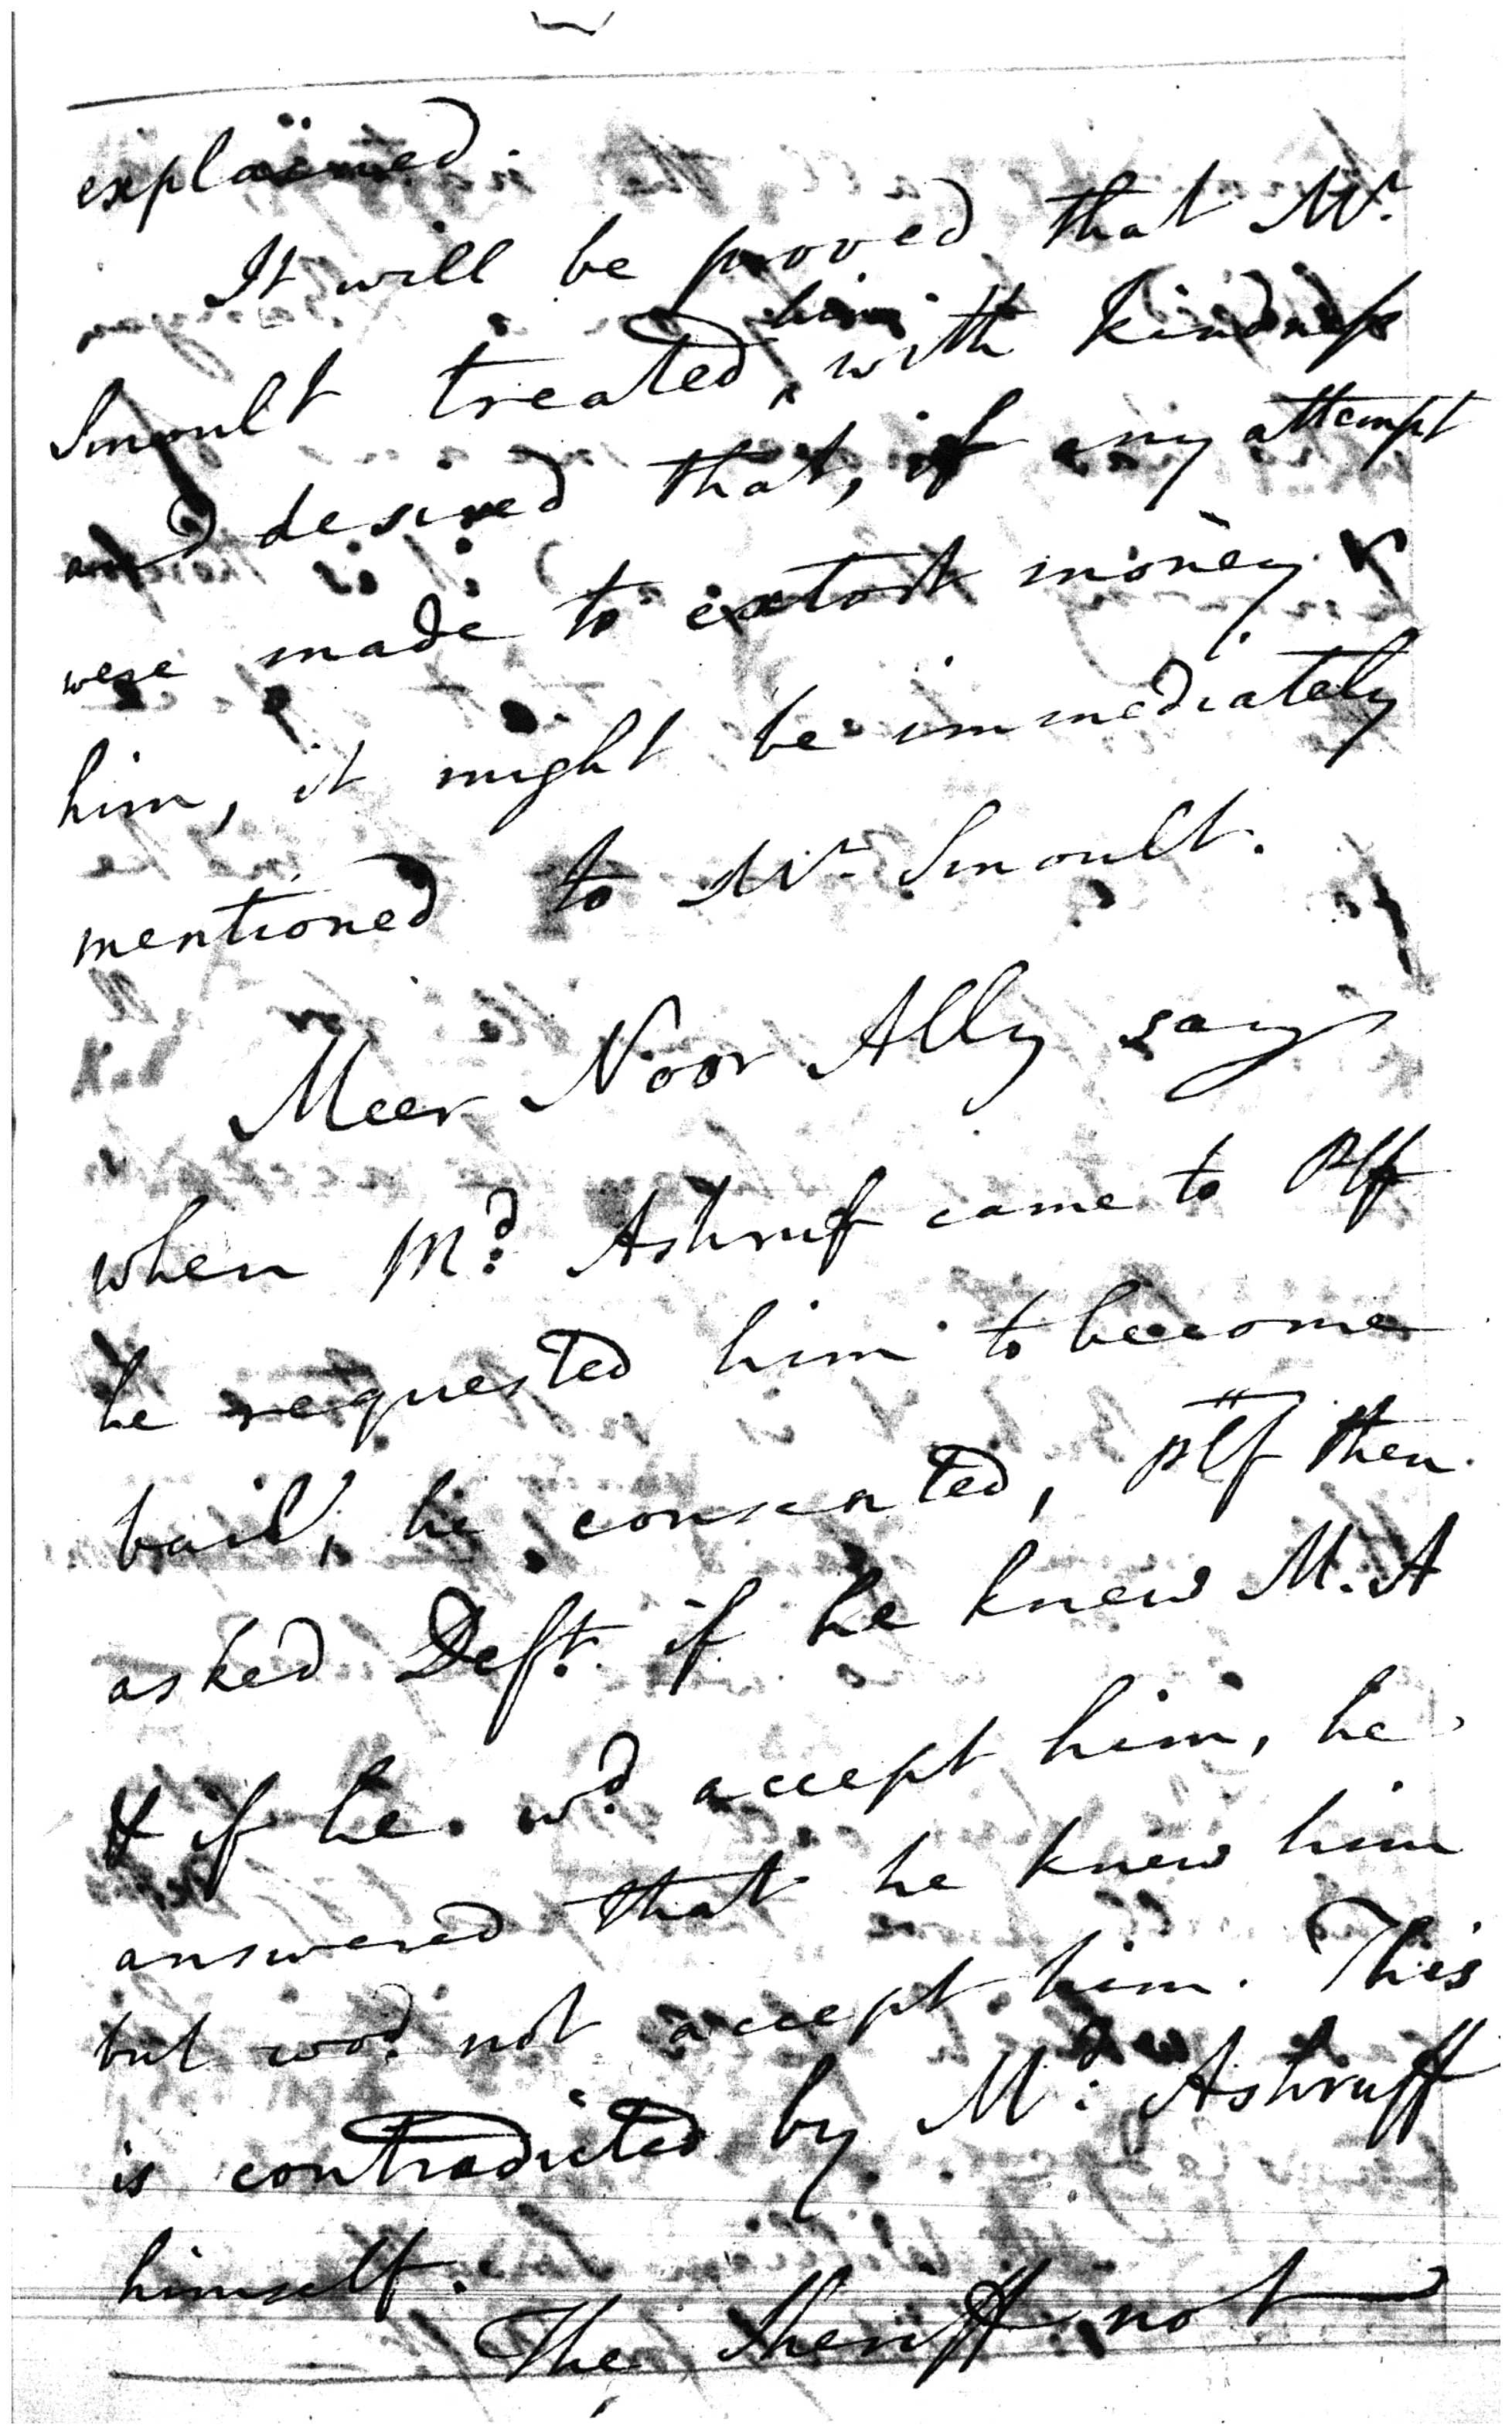 explained.
It will be proved that Mr.
Smoult treated him with kindness
and desired that, if any attempt
were made to extort money
him, it might be immediately
mentioned to Mr. Smoult.
Meer Noor Ally says
when Md. Ashruf came to Plff
he requested him to become
bail, he consented, Plff then
asked Deft. if he knew M. A
& if he wd. accept him, he
answered that he knew him
but wod. not accept him. This
is contradicted by Md. Ashruff
himself.
The Sheriff not